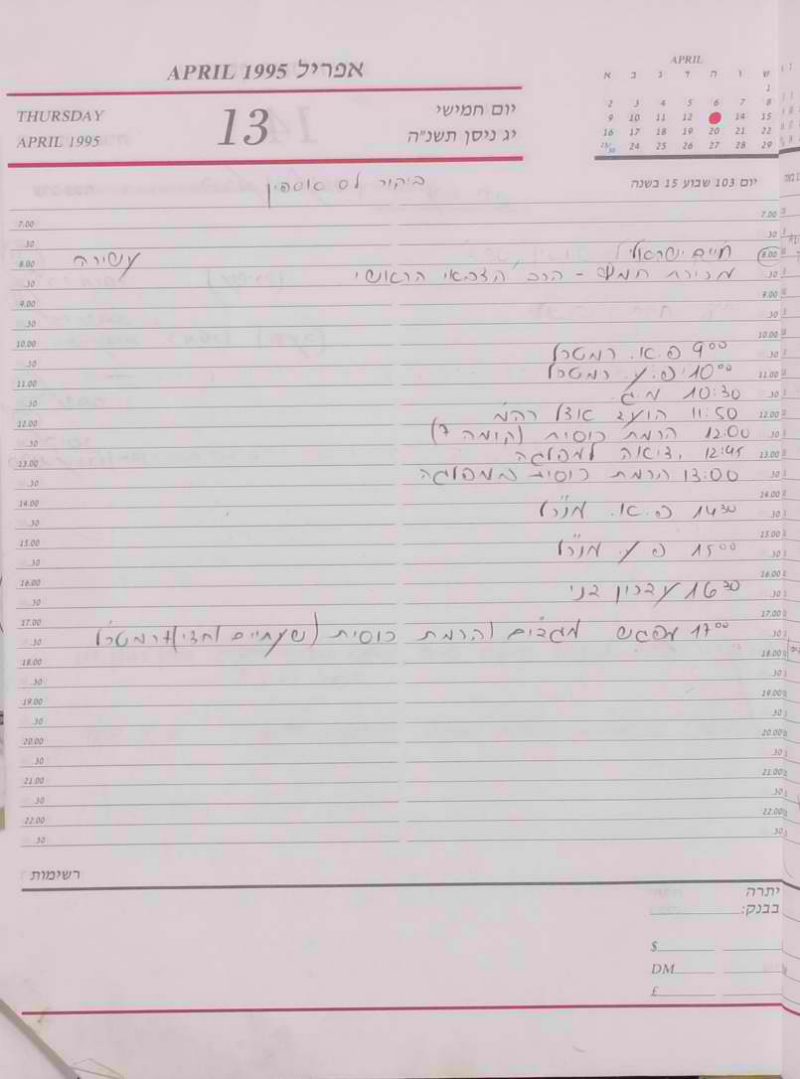 אפריל APRIL 1995
APRIL
א ב ג ד ה ו ש
1
2 3 4 5 6 7 8
9 10 11 12 14 15
16 17 18 19 20 21 22
23/30 24 25 26 27 28 29
THURSDAY
APRIL 1995
13
יום חמישי
יג ניסן תשנ"ה
יום 103 שבוע 15 בשנה
ביקור
7.00 7.00
30 30
8.00 חיים ישראלי 8.00
30 מכירת חמץ - הרב הצבאי הראשי 30
9.00 9.00
30 30
10.00 10.00
30 9:00 פ.א. רמטכל 30
11.00 10:00 פ.ע. רמטכל 11.00
30 10:30 מ.ג. 30
12.00 11:50 הועד אצל רהמ 12.00
30 12:00 הרמת כוסית (קומה 7) 30
13.00 12:45 יציאה למפלגה 13.00
30 13:00 הרמת כוסית במפלגה 30
14.00 14.00
30 14:30 פ.א. מנכ"ל 30
15.00 15.00
30 15:00 פ.ע. מנכ"ל 30
16.00 16.00
30 16:30 עברון בני 30
17.00 17.00
30 17:00 מפגש הרמת כוסית 30
18.00 18.00
30 30
19.00 19.00
30 30
20.00 20.00
30 30
21.00 21.00
30 30
22.00 22.00
30 30
רשימות
יתרה
בבנק:
$
DM
£